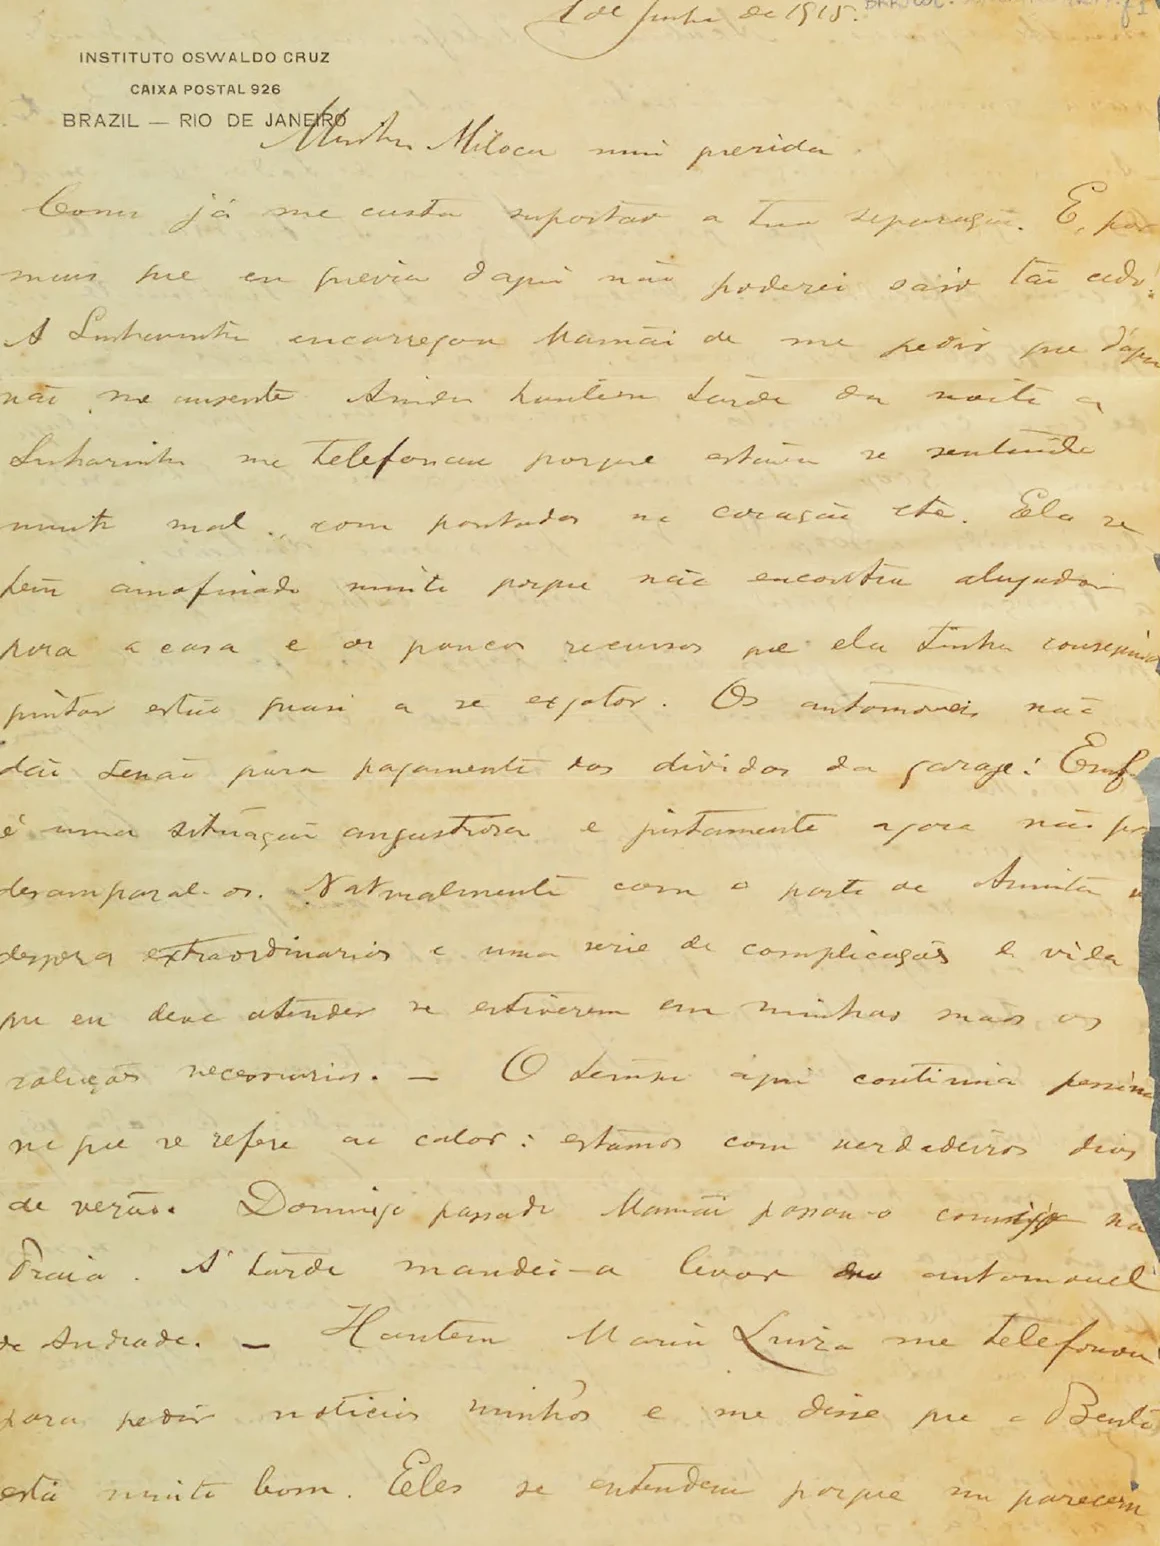 1 de Junho de 1915.
INSTITUTO OSWALDO CRUZ
CAIXA POSTAL 926
BRAZIL — RIO DE JANEIRO
Minha Miloca mui querida
Como já me custa suportar a tua separação. E, por
mais que eu queira d'aqui não poderei sair tão cedo.
A Sinharinha encarregou Mamãi de me pedir que d'aqui
não me ausente Ainda hontem tarde da noite a
Sinharinha me telefonou porque estava se sentindo
muito mal, com pontadas no coração etc. Ela se
tem amofinado muito porque não encontra alugador
para a casa e os poucos recursos que ela tinha conseguido
juntar estão quasi a se exgotar. Os automoveis não
dão senão para pagamento das dividas da garage! Emf
é uma situação angustiosa e justamente agora não pos
desamparal-os. Naturalmente com o parto de Annita
despezas extraordinarias e uma serie de complicações de vida
que eu devo atender se estiverem em minhas mãos as
soluções necessarias. — O tempo aqui continúa pessimo
no que se refere ao calor: estamos com verdadeiros dias
de verão. Domingo passado Mamãi passou-o comigo na
Praia. A' tarde mandei-a levar no automovel
de Andrade. — Hontem Maria Luiza me telefonou
para pedir noticias minhas e me disse que o Bento
está muito bom. Eles se entendem porque me parecem